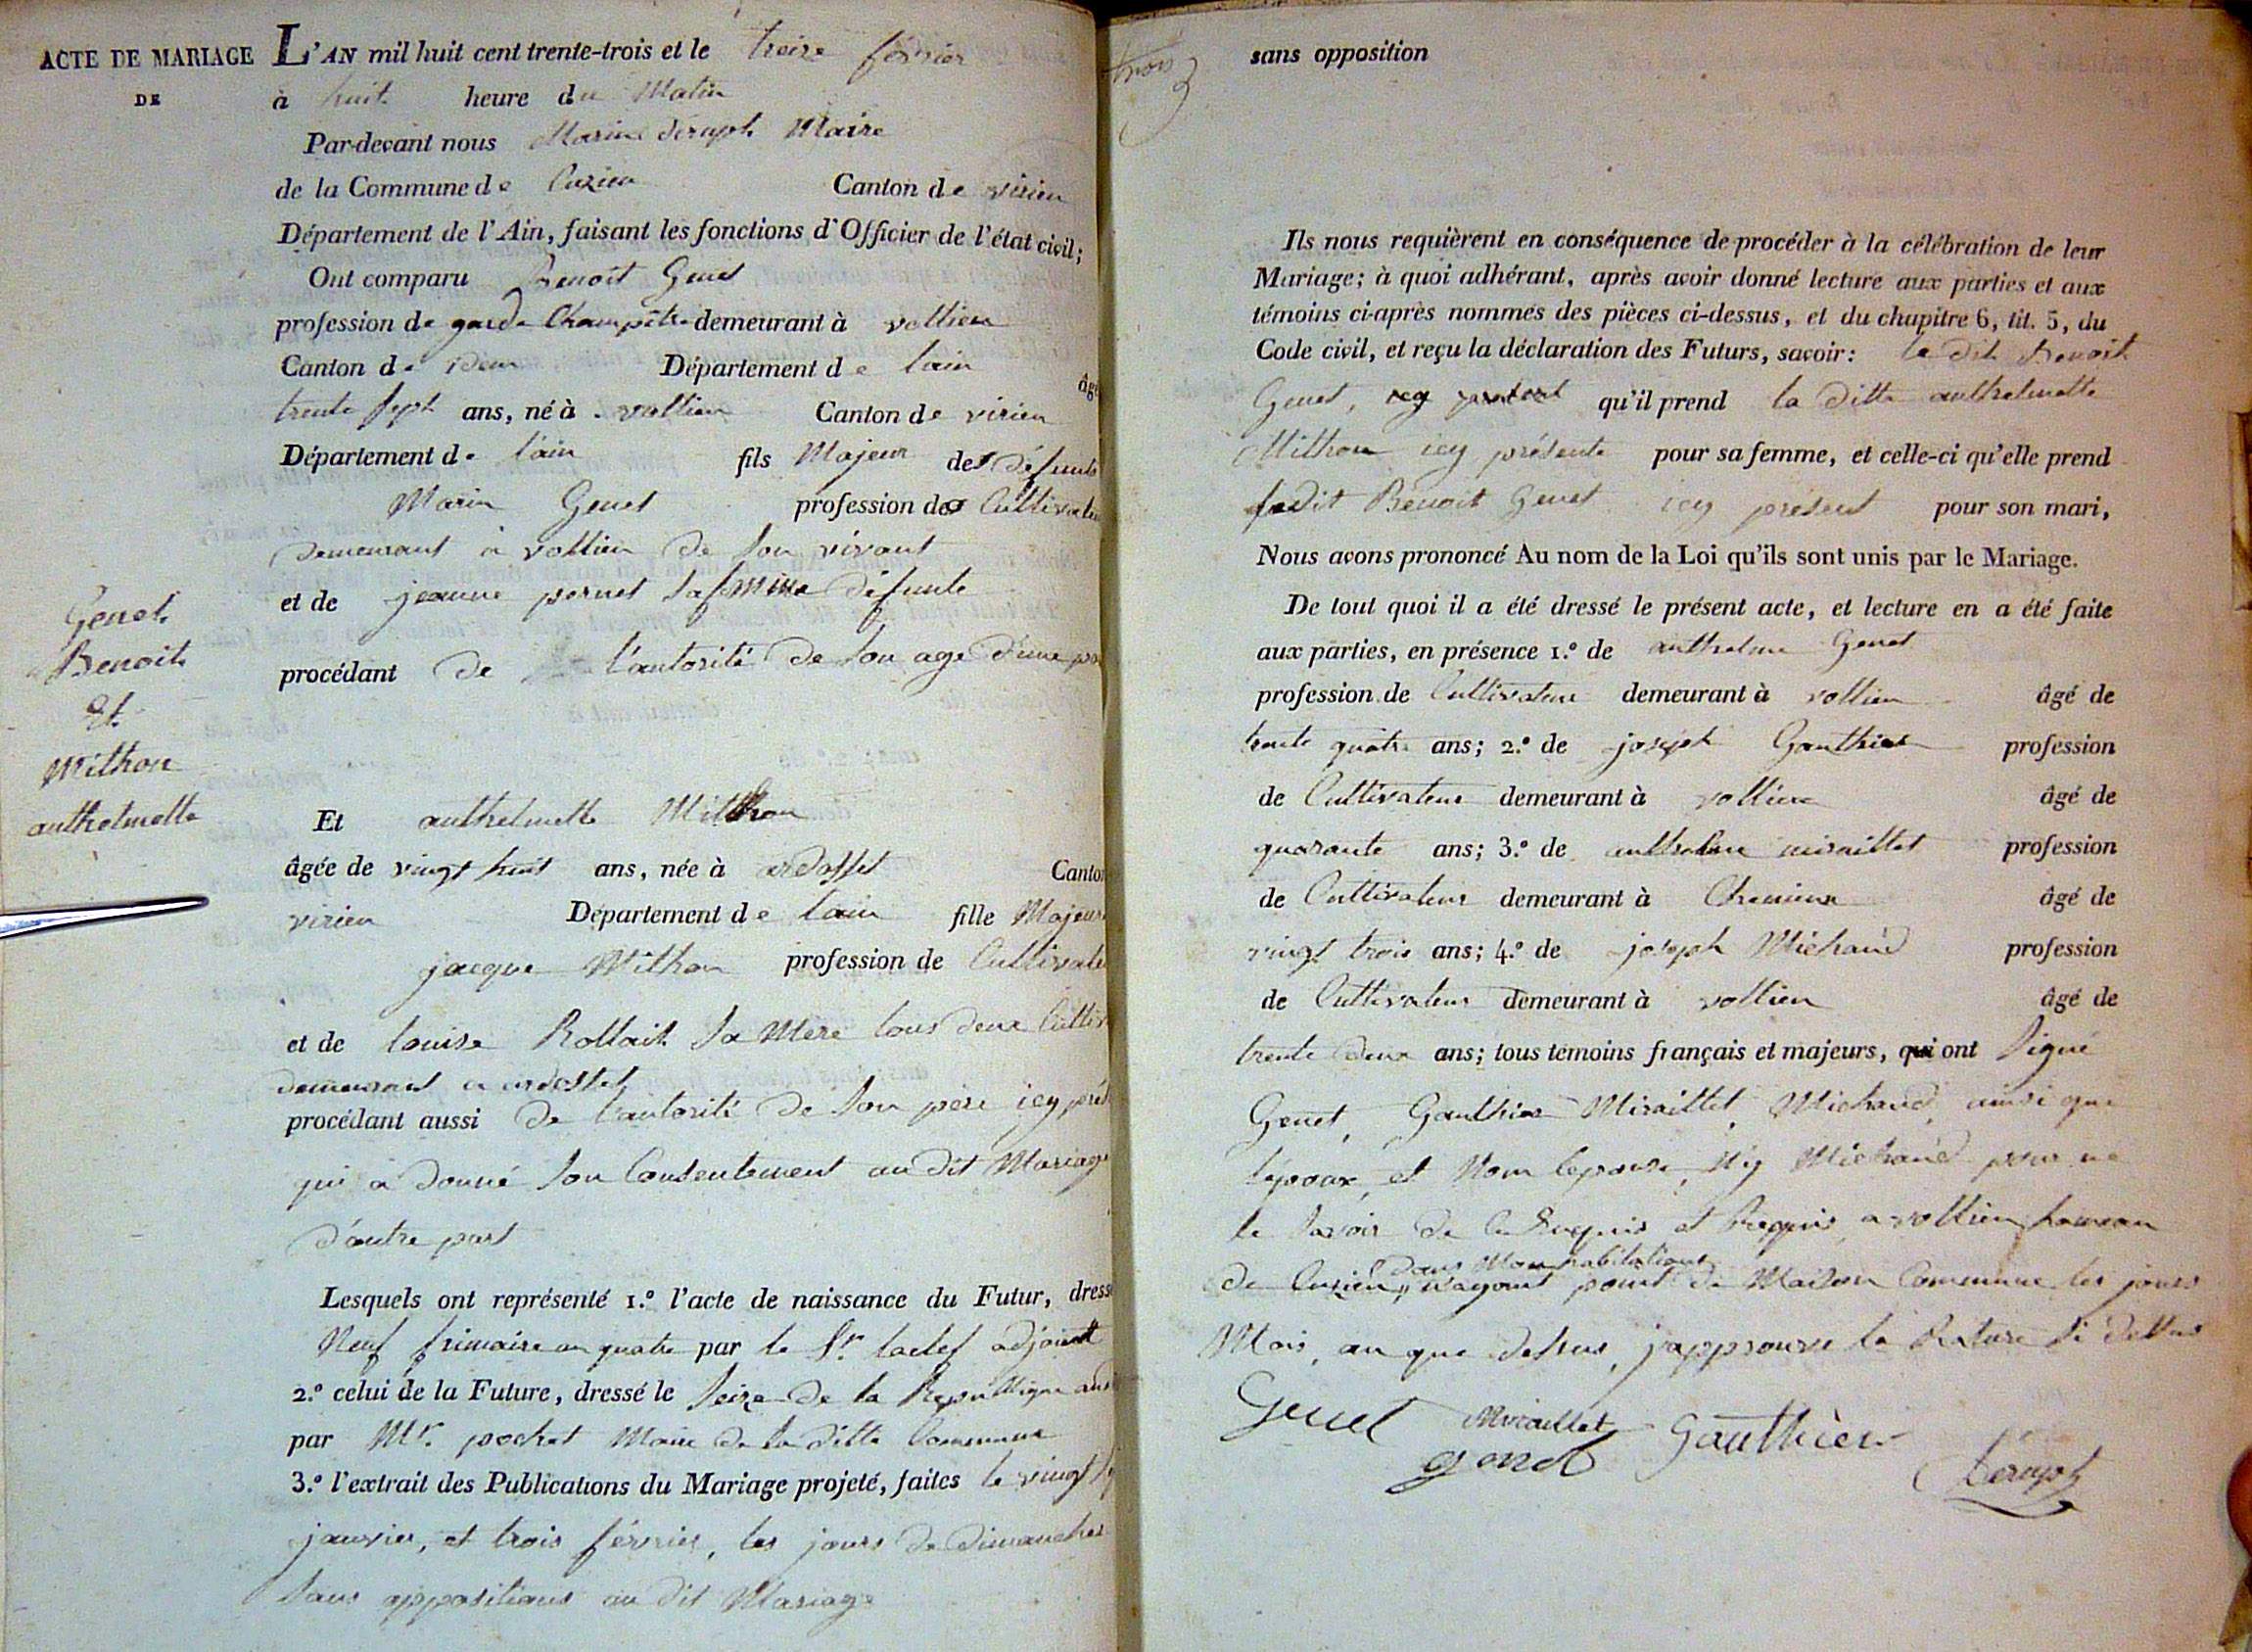 ACTE DE MARIAGE
DE
Genet
Benoit
Et
Mithon
anthelmette
L'AN mil huit cent trente-trois et le treize février
à huit heure du Matin
Par-devant nous Marin Séraph Maire
de la Commune de Cuzieu Canton de virieu
Département de l'Ain, faisant les fonctions d'Officier de l'état civil;
Ont comparu Benoit Genet
profession de garde Champêtre demeurant à vollien
Canton de idem Département de lain âgé
trente sept ans, né à vollien Canton de virieu
Département de lain fils Majeur des défunts
Marin Genet profession de Cultivateu
demeurant à vollien de son vivant
et de jeanne pernet sa femme défunte
procédant de l'autorité de son age d'une pa
Et anthelmette Mithon
âgée de vingt huit ans, née à ardosset Canton
virieu Département de lain fille Majeur
jacque Mithon profession de Cultivate
et de louise Rollait sa Mere tous deux Cultiv
demeurant a ardosset
procédant aussi de l'autorité de son père icy prés
qui a donné son Consentement au dit Mariage
d'autre part
Lesquels ont représenté 1.º l'acte de naissance du Futur, dress
Neuf frimaire an quatre par le Sr. laclef adjoint
2.º celui de la Future, dressé le seize de la Republique
par Mr. pochet Maire de la ditte Commune
3.º l'extrait des Publications du Mariage projeté, faites le vingt
janvier, et trois février, les jours de dimanches
sans oppositions au dit Mariage
trois
3
sans opposition
Ils nous requièrent en conséquence de procéder à la célébration de leur
Mariage; à quoi adhérant, après avoir donné lecture aux parties et aux
témoins ci-après nommés des pièces ci-dessus, et du chapitre 6, tit. 5, du
Code civil, et reçu la déclaration des Futurs, savoir: le dit Benoit
Genet, icy présent qu'il prend la ditte anthelmette
Mithon icy présente pour sa femme, et celle-ci qu'elle prend
ledit Benoit Genet icy présent pour son mari,
Nous avons prononcé Au nom de la Loi qu'ils sont unis par le Mariage.
De tout quoi il a été dressé le présent acte, et lecture en a été faite
aux parties, en présence 1.º de anthelme Genet
profession de Cultivateur demeurant à vollien âgé de
trente quatre ans; 2.º de joseph Gauthier profession
de Cultivateur demeurant à vollien âgé de
quarante ans; 3.º de anthelme miraillet profession
de Cultivateur demeurant à Chemieux âgé de
vingt trois ans; 4.º de joseph Michaud profession
de Cultivateur demeurant à vollien âgé de
trente deux ans; tous témoins français et majeurs, qui ont signé
Genet, Gauthier Miraillet, Michaud, ainsi que
lépoux, et Nom lepouse, Ny Michaud pour ne
le savoir de ce Enquis et Requis a vollien hameau
dans Mon habitations
de Cuzieu, n'ayant point de Maison Commune les jours
Mois, an que dessus, japprouve la Rature si dessus
Genet Miraillet Gauthier
genet Séraph